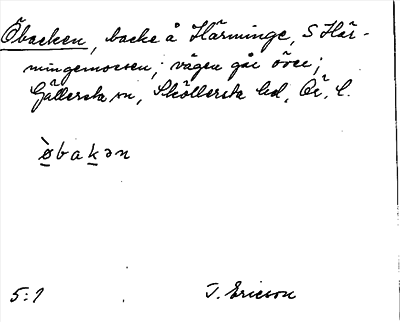 Öbacken, backe å Härminge, S Här-
mingemossen; vägen går över;
Gällersta sn, Sköllersta hd, Ör. l.
øbakən
5:1 T. Ericson